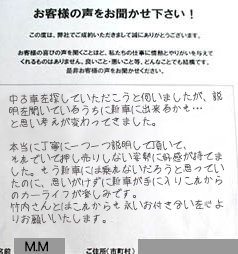 お客様の声をお聞かせ下さい！
この度は、弊社でご成約いただきまして誠にありがとうございます。
お客様の喜びの声を聞くことほど、私たちの仕事に情熱とやりがいを与えて
くれるものはありません。良いこと・悪いこと等、どんなことでも結構です。
是非お客様の声をお聞かせください。
中古車を探していただこうと伺いましたが、説
明を聞いているうちに新車に出来るかも…
と思い考えが変わってきました。
本当に丁寧に一つ一つ説明して頂いて、
それでいて押し売りしない姿勢に好感が持てま
した。もう新車には乗れないだろうと思ってい
たのに、思いがけずに新車が手に入りこれから
のカーライフが楽しみです。
竹内さんとはこれからも永いお付き合いを心より
お願いいたします。
名前 M.M ご住所（市町村）